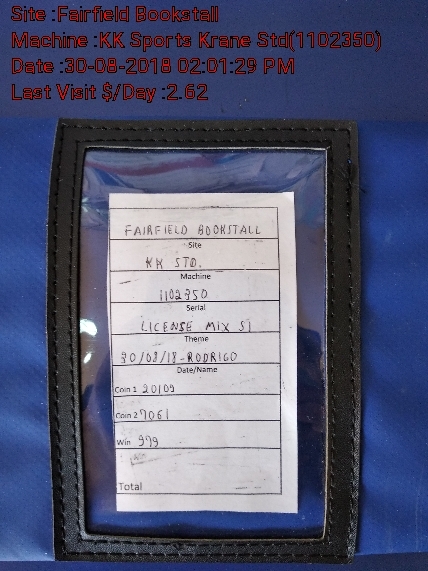 Site :Fairfield Bookstall
Machine :KK Sports Krane Std(1102350)
Date :30-08-2018 02:01:29 PM
Last Visit $/Day :2.62
FAIRFIELD BOOKSTALL
Site
KK STD.
Machine
1102350
Serial
LICENSE MIX $1
Theme
30/08/18-RODRIGO
Date/Name
Coin 1 20109
Coin 2 7061
Win 979
Total